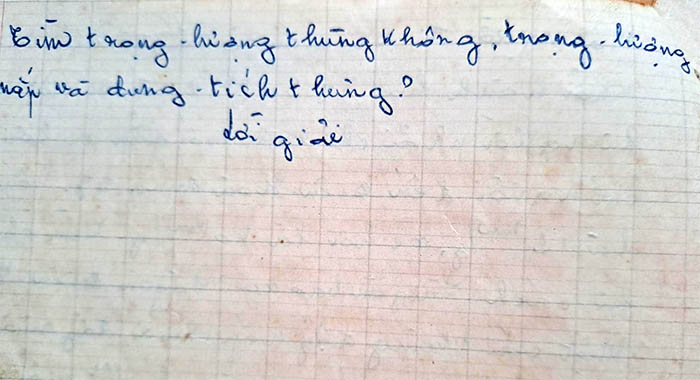 Tìm trọng lượng thùng không, trọng lượng
nắp và dung tích thùng?
Lời giải